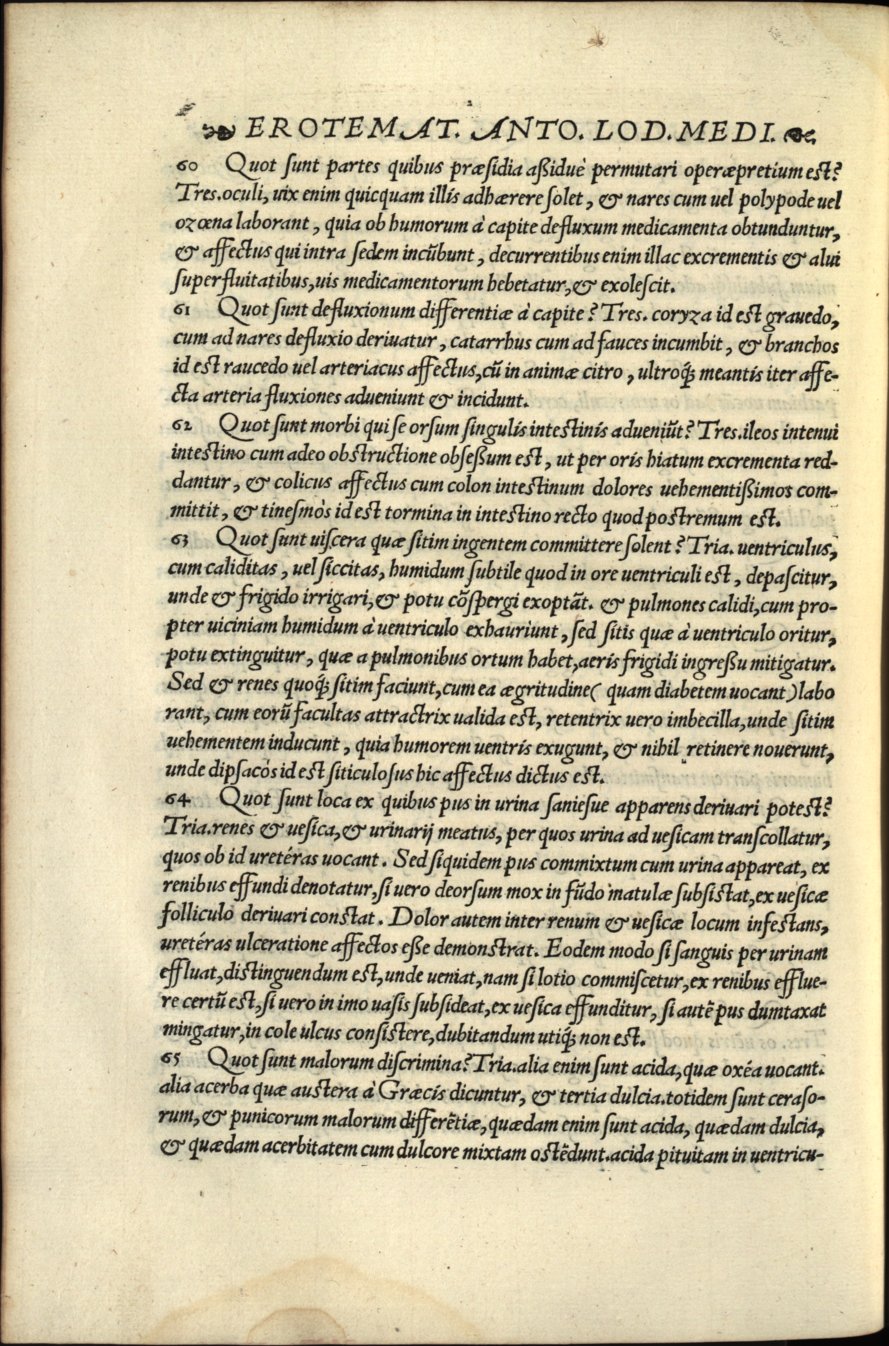 EROTEMAT. ANTO. LOD. MEDI.
60 Quot ſunt partes quibus præſidia aßiduè permutari operæpretium est?
Tres.oculi, uix enim quicquam illis adhærere ſolet, & nares cum uel polypode uel
ozœna laborant, quia ob humorum à capite defluxum medicamenta obtunduntur,
& affectus qui intra ſedem incũbunt, decurrentibus enim illac excrementis & alui
ſuperfluitatibus, uis medicamentorum hebetatur, & exoleſcit.
61 Quot ſunt defluxionum differentiæ à capite? Tres. coryza id est grauedo,
cum ad nares defluxio deriuatur, catarrhus cum ad fauces incumbit, & branchos
id est raucedo uel arteriacus affectus, cũ in animæ citro, ultroq́; meantis iter affe-
cta arteria fluxiones adueniunt & incidunt.
62 Quot ſunt morbi qui ſe orſum ſingulis intestinis adueniũt? Tres.ileos intenui
intestino cum adeo obstructione obſeßum est, ut per oris hiatum excrementa red-
dantur, & colicus affectus cum colon intestinum dolores uehementißimos com-
mittit, & tineſmòs id est tormina in intestino recto quod postremum est.
63 Quot ſunt uiſcera quæ ſitim ingentem committere ſolent? Tria. uentriculus,
cum caliditas, uel ſiccitas, humidum ſubtile quod in ore uentriculi est, depaſcitur,
unde & frigido irrigari, & potu cõſpergi exoptãt. & pulmones calidi, cum pro-
pter uiciniam humidum à uentriculo exhauriunt, ſed ſitis quæ à uentriculo oritur,
potu extinguitur, quæ a pulmonibus ortum habet, aeris frigidi ingreßu mitigatur.
Sed & renes quoq́; ſitim faciunt, cum ea ægritudine( quam diabetem uocant) labo
rant, cum eorũ facultas attractrix ualida est, retentrix uero imbecilla, unde ſitim
uehementem inducunt, quia humorem uentris exugunt, & nihil retinere nouerunt,
unde dipſacòs id est ſiticuloſus hic affectus dictus est.
64 Quot ſunt loca ex quibus pus in urina ſanieſue apparens deriuari potest?
Tria.renes & ueſica, & urinarij meatus, per quos urina ad ueſicam transcollatur,
quos ob id uretéras uocant. Sed ſiquidem pus commixtum cum urina appareat, ex
renibus effundi denotatur, ſi uero deorſum mox in fũdo matulæ ſubſistat, ex ueſicæ
folliculo deriuari constat. Dolor autem inter renum & ueſicæ locum infestans,
uretéras ulceratione affectos eße demonstrat. Eodem modo ſi ſanguis per urinam
effluat, distinguendum est, unde ueniat, nam ſi lotio commiſcetur, ex renibus efflue-
re certũ est, ſi uero in imo uasis ſubſideat, ex ueſica effunditur, ſi autẽ pus dumtaxat
mingatur, in cole ulcus conſistere, dubitandum utiq́; non est.
65 Quot ſunt malorum diſcrimina? Tria.alia enim ſunt acida, quæ oxéa uocant.
alia acerba quæ austera à Græcis dicuntur, & tertia dulcia.totidem ſunt ceraſo-
rum, & punicorum malorum differẽtiæ, quædam enim ſunt acida, quædam dulcia,
& quædam acerbitatem cum dulcore mixtam ostẽdunt.acida pituitam in uentricu-